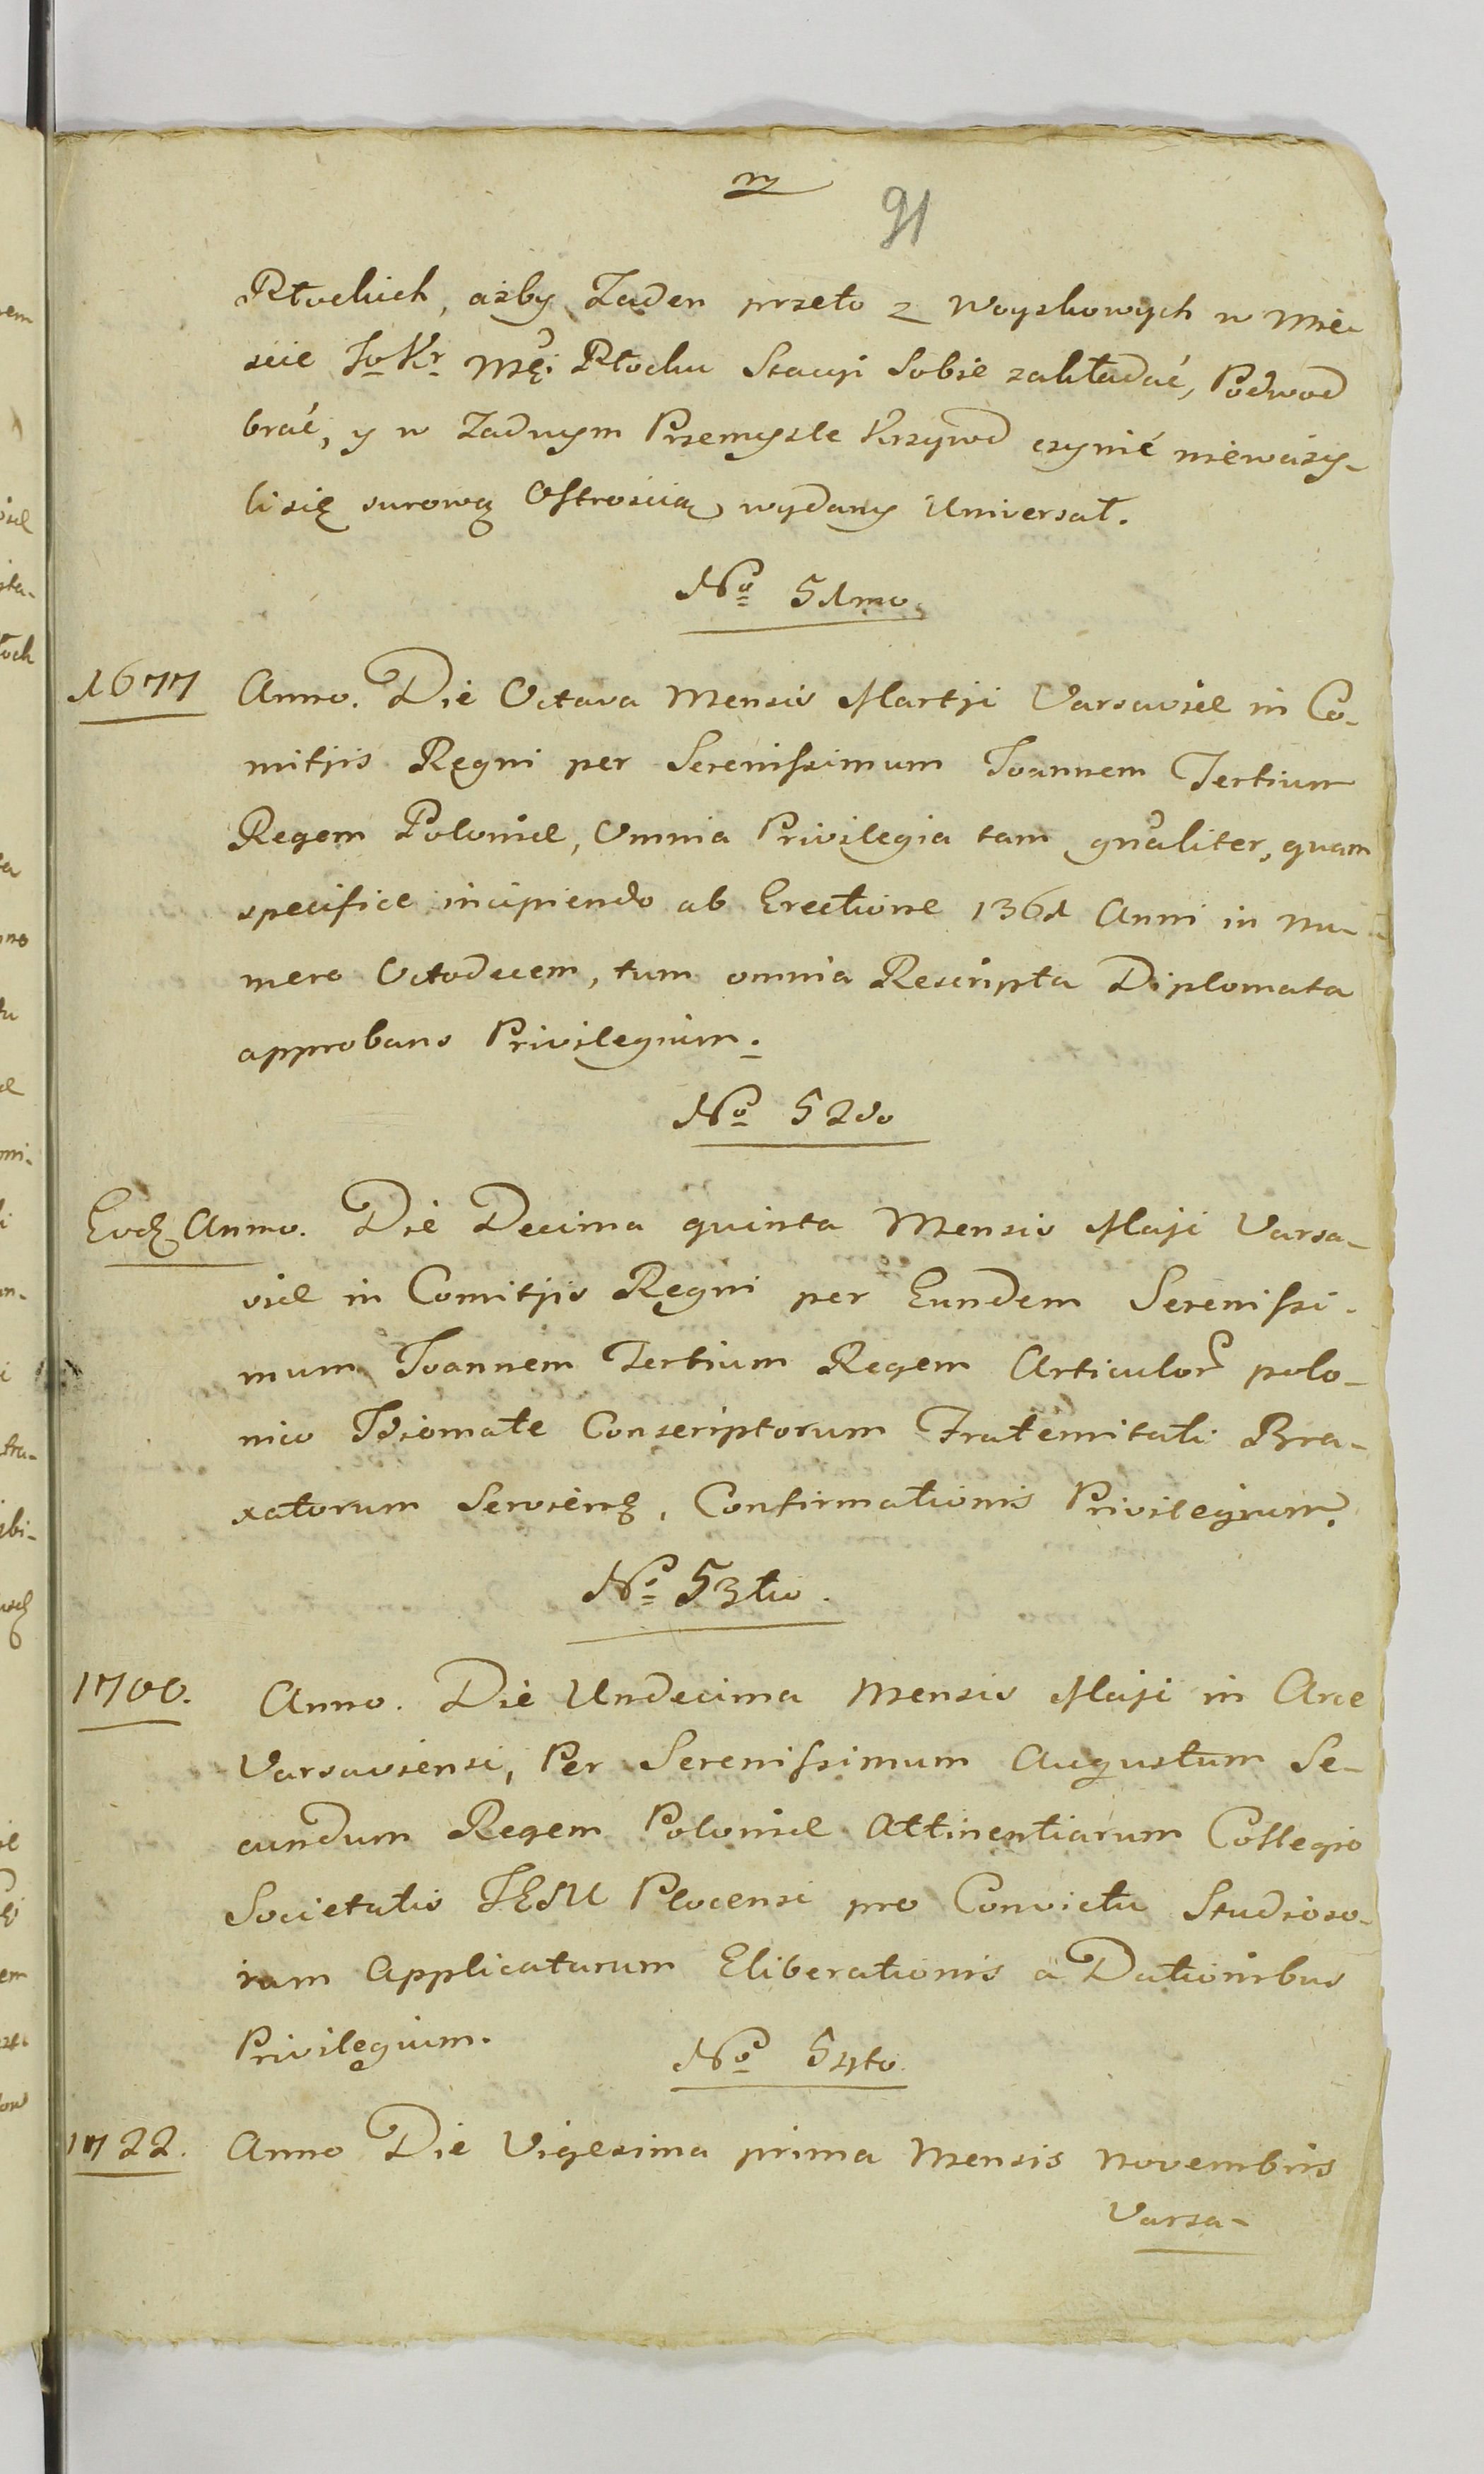 91
Płockich, ażby Zaden przeto z Woyskowych w Mie-
scie Jo Kr Męi Płocku Stacyi Sobie zakładać, Podwod
brać, y w Zadnym Przemysle Krzywd czynić nieważy-
li się surową Ostroscią wydany Universał.
No 51mo.
1677 Anno. Die Octava Mensis Martji Varsaviae in Co-
mitjis Regni per Serenissimum Joannem Tertium
Regem Poloniae, Omnia Privilegia tam gnaliter, quam
specifice incipiendo ab Erectione 1361 Anni in Nu-
mero Octodecem, tum omnia Rescripta Diplomata
approbans Privilegium.
No 52do
Eod Anno. Die Decima quinta Mensis Maji Varsa-
viae in Comitjis Regni per Eundem Serenissi-
mum Joannem Tertium Regem Articulor polo-
nico Idiomate Conscriptorum Fraternitati Bra-
xatorum Servieng, Confirmationis Privilegium.
No 53tio.
1700. Anno. Die Undecima Mensis Maji in Arce
Varsaviensi, Per Serenissimum Augustum Se-
cundum Regem Poloniae Attinentiarum Collegio
Societatis JESU Plocensi pro Convictu Studioso-
rum Applicatarum Eliberationis a Dationibus
Privilegium.
No 54to.
1722. Anno Die Vigesima prima Mensis Novembris
Varsa-